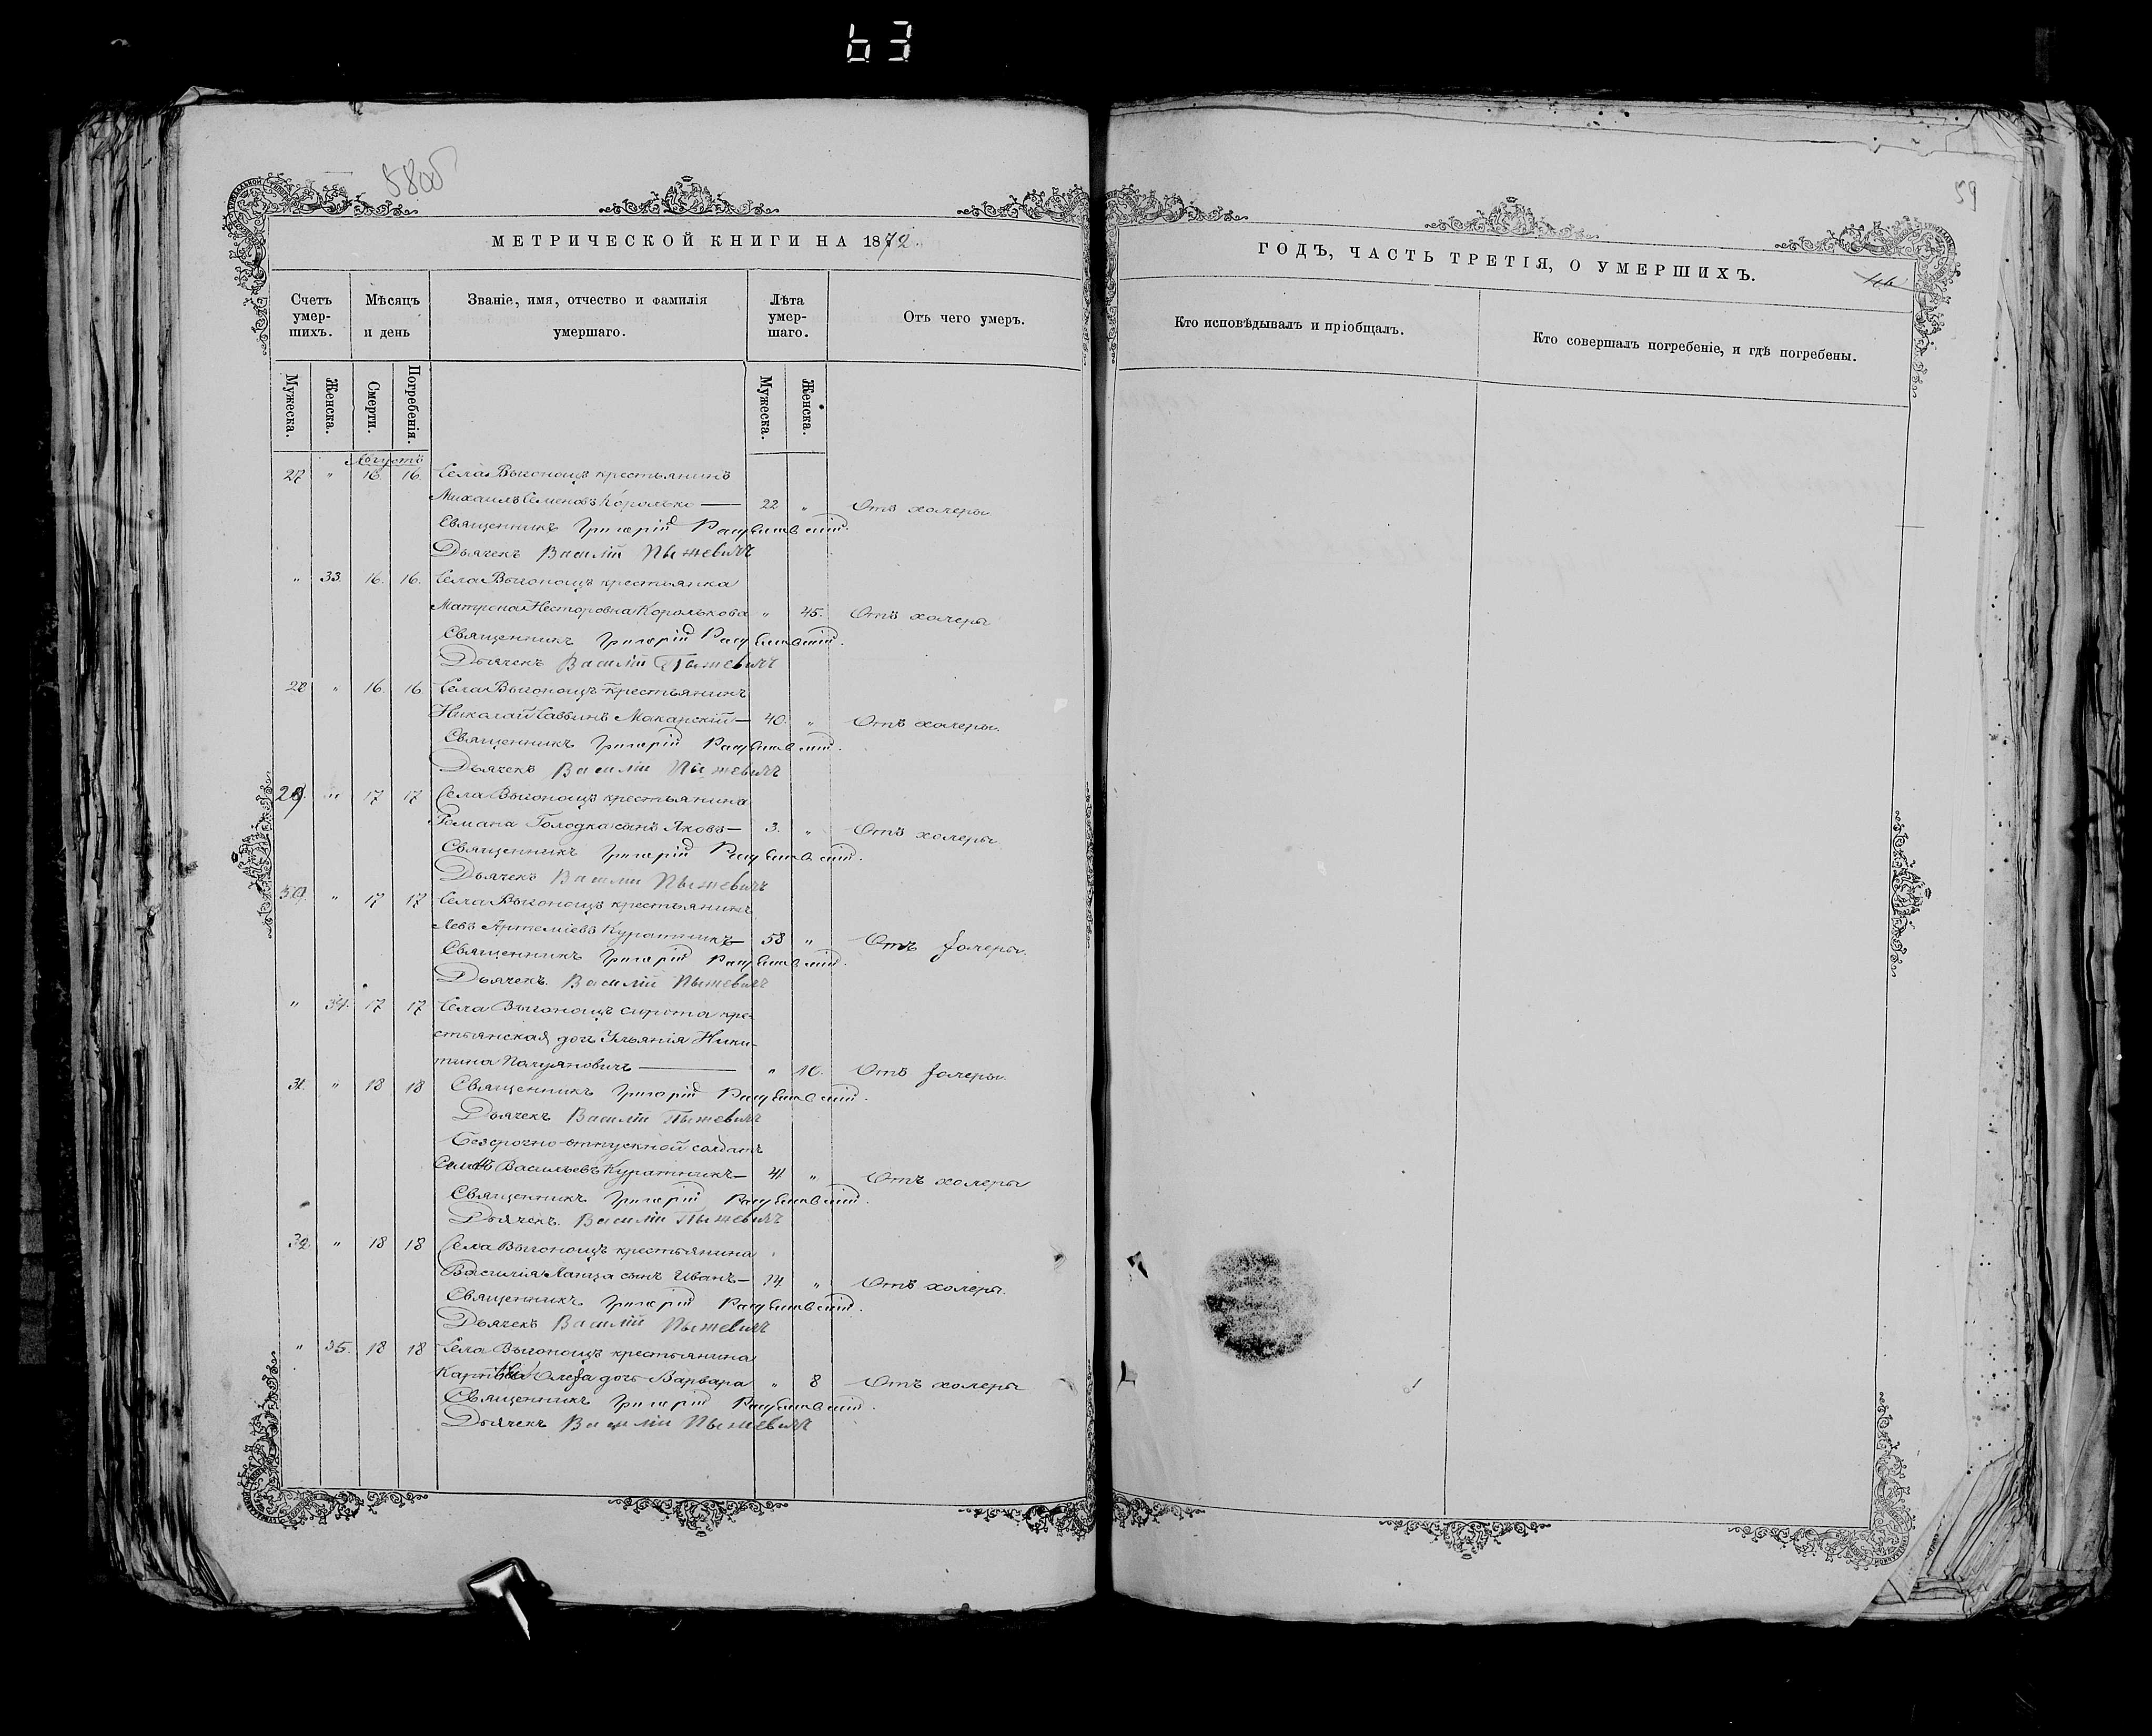 63
58об
59
МЕТРИЧЕСКОЙ КНИГИ НА 1872
ГОДЪ, ЧАСТЬ ТРЕТІЯ, О УМЕРШИХЪ.
Счетъ умер-шихъ.
Мѣсяцъ и день
Званіе, имя, отчество и фамилія умершаго.
Лѣта умер-шаго.
Отъ чего умеръ.
Кто исповѣдывалъ и пріобщалъ.
Кто совершалъ погребеніе, и гдѣ погребены.
Мужеска. Женска. Смерти. Погребенія. Мужеска. Женска.
Августъ
27 " 16. 16. Села Выгонощъ крестьянинъ
Михаилъ Семеновъ Королько — 22 " Отъ холеры
Священникъ Григорій
Дьячекъ Василій Пыжевичъ
" 33. 16. 16. Села Выгонощъ крестьянка
Матрона Несторовна Королькова " 45. Отъ холеры
Священникъ Григорій
Дьячекъ Василій Пыжевичъ
28 " 16. 16 Села Выгонощъ крестьянинъ
Николай Саввинъ Макарскій — 40. " Отъ холеры.
Священникъ Григорій
Дьячекъ Василій Пыжевичъ
29. " 17 17 Села Выгонощъ крестьянина
Романа Голодка сынъ Яковъ — 3. " Отъ холеры.
Священникъ Григорій
Дьячекъ Василій Пыжевичъ
30. " 17 17 Села Выгонощъ крестьянинъ
Левъ Артеміевъ Куратникъ — 58 " Отъ холеры.
Священникъ Григорій
Дьячекъ. Василій Пыжевичъ
" 34. 17 17 Села Выгонощъ сирота кре-
стьянская дочь Ульянія Ники-
тина — " 10. Отъ холеры.
31. " 18 18 Священникъ Григорій
Дьячекъ Василій Пыжевичъ
Безсрочно-отпускной солдатъ
Васильевъ Куратникъ — 41 " Отъ холеры
Священникъ Григорій
Дьячекъ. Василій Пыжевичъ
32. " 18 18 Села Выгонощъ крестьянина
Василія сынъ Иванъ — 14. " Отъ холеры.
Священникъ Григорій
Дьячекъ Василій Пыжевичъ
" 35. 18 18 Села Выгонощъ крестьянина
дочь Варвара " 8 Отъ холеры
Священникъ Григорій
Дьячекъ Василій Пыжевичъ